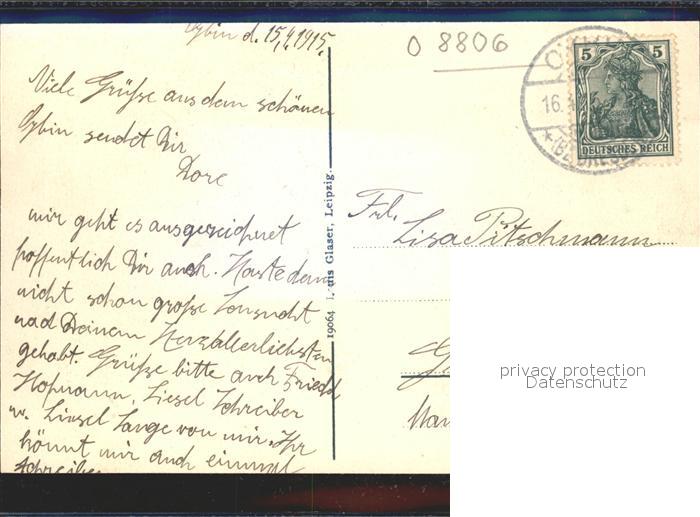 Oybin d. 15.4.1915.
Viele Grüße aus dem schönen
Oybin sendet Dir
Dore
mir geht es ausgezeichnet
hoffentlich Dir auch. Haste denn
nicht schon große Sehnsucht
nach Deinem Herzallerliebsten
gehabt. Grüße bitte auch Friedel
Hofmann, Liesel Schreiber
u. Liesel Lange von mir. Ihr
könnt mir auch einmal
schreiben
19064 Louis Glaser, Leipzig.
O 8806
16.
5 5
DEUTSCHES REICH
Frl.
Lisa Pitschmann
privacy protection
Datenschutz